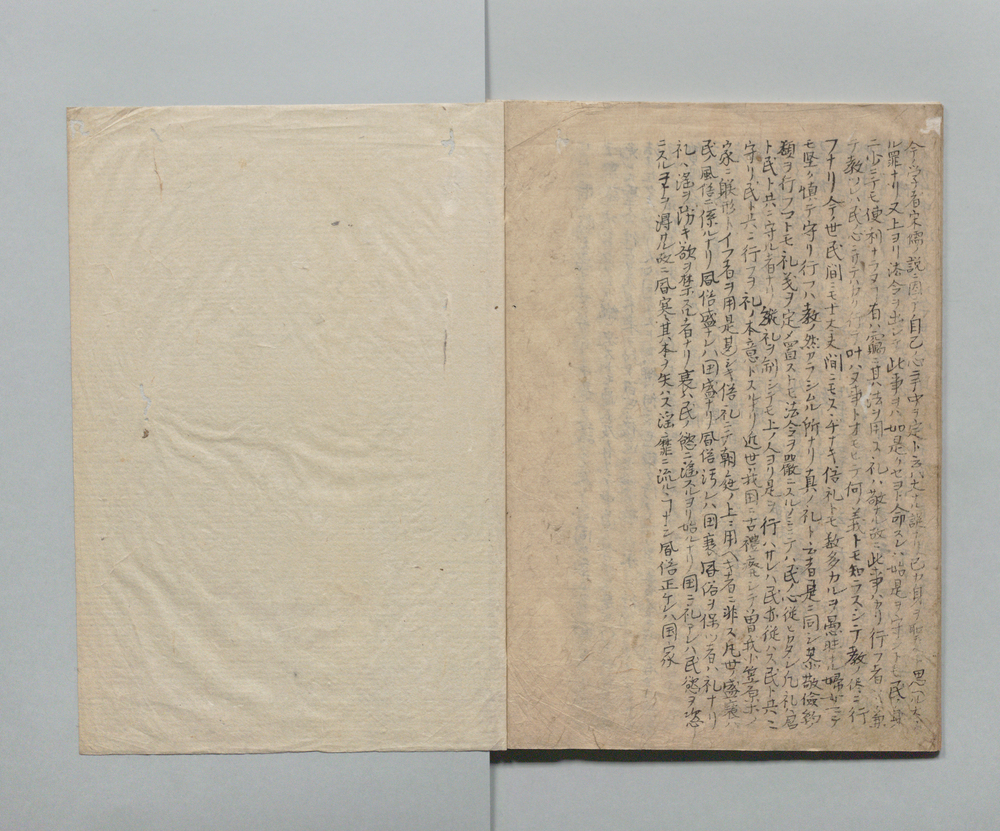 今ノ学者宋儒ノ説ニ因テ自己ノ心ニテ中ヲ定ト云ハ大ナル誤ナリ己カ身ヲ聖人ト思ヘル大
ル罪ナリ又上ヨリ法令ヲ出シテ此事ヲハ如是クセヨト命スレハ始是ヲ守ントシ民
ニ少ニテモ便利ナラヌコ有ハ竊ニ其法ヲ用ス礼ハ敬ナル故此事ハカリ行フ者
テ教ハ民ノ心ニ行叶ハヌ事トオモヒテ何ノ義トモ知ラスシテ教ノ侭ニ行
フナリ今ノ世民間ニモ士大夫ノ間ニモスヂナキ俗礼トモ数多カルヲ愚昧ナル婦女ニテ
モ堅ク慎テ守リ行フハ教ノ然ラシムル所ナリ真ノ礼ト云者是ニ同シ恭敬倹約
ノ類ヲ行フコトモ礼義ヲ定メ置ストモ法令ヲ厳ニスルノミニテハ民ノ心従ヒカタシ凡礼ハ君
ト民ト共ニ守ル者ナリ縦礼ヲ制シテモ上ノ人ヨリ是ヲ行ハサレハ民亦従ハス民ト共ニ
守リ民ト共ニ行フヲ礼ノ本意トスルナリ近世ハ我国ニ古禮廢シテ曽我小笠原ホノ
家ニ躾形トイフ者ヲ用是甚シキ俗礼ニテ朝庭ノ上ニ用ヘキ者ニ非ス凡世ノ盛衰ハ
民ノ風俗ニ係ルナリ風俗盛ナレハ国盛ナリ風俗汚レハ国衰風俗ヲ保ツ者ハ礼ナリ
礼ハ淫ヲ防キ欲ヲ禁スル者ナリ衰ハ民ノ慾ニ淫スルヨリ始ルナリ国ニ礼アレハ民慾ヲ恣
ニスルコヲ得ス故ニ風寔其本ヲ失ハス淫靡ニ流ルヽコナシ風俗正ケレハ国家